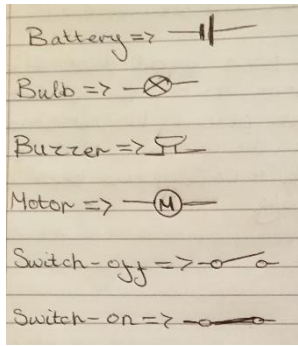 Battery =>
Bulb =>
Buzzer =>
Motor => M
Switch-off =>
Switch-on =>